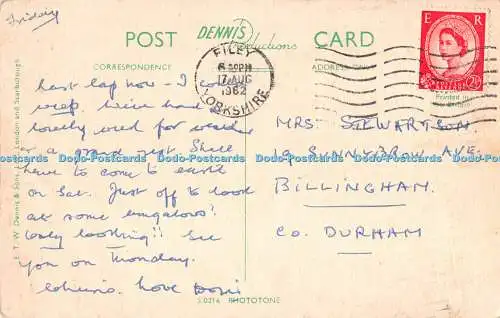 Friday
POST
DENNIS
Productions
CARD
CORRESPONDENCE
ADDRESS ONLY
FILEY
6 30PM
17 AUG
1962
YORKSHIRE
E R
POSTAGE REVENUE
2½D
Printed in
Great Britain
last lap now - I could
weep. We've had a
lovely week for weather
& a grand rest. Shall
have to come to earth
on Sat. Just off to look
at some bungalows!
Only looking!! See
you on Monday.
Love Doris
MRS STEWARTSON
19 SUNNYBROW AVE.
BILLINGHAM.
CO. DURHAM
E. T. W. Dennis & Sons Ltd., London and Scarborough
S.0216 PHOTOTONE
Dodo-Postcards Dodo-Postcards Dodo-Postcards Dodo-Postcards Dodo-Postcards Dodo-Postcards